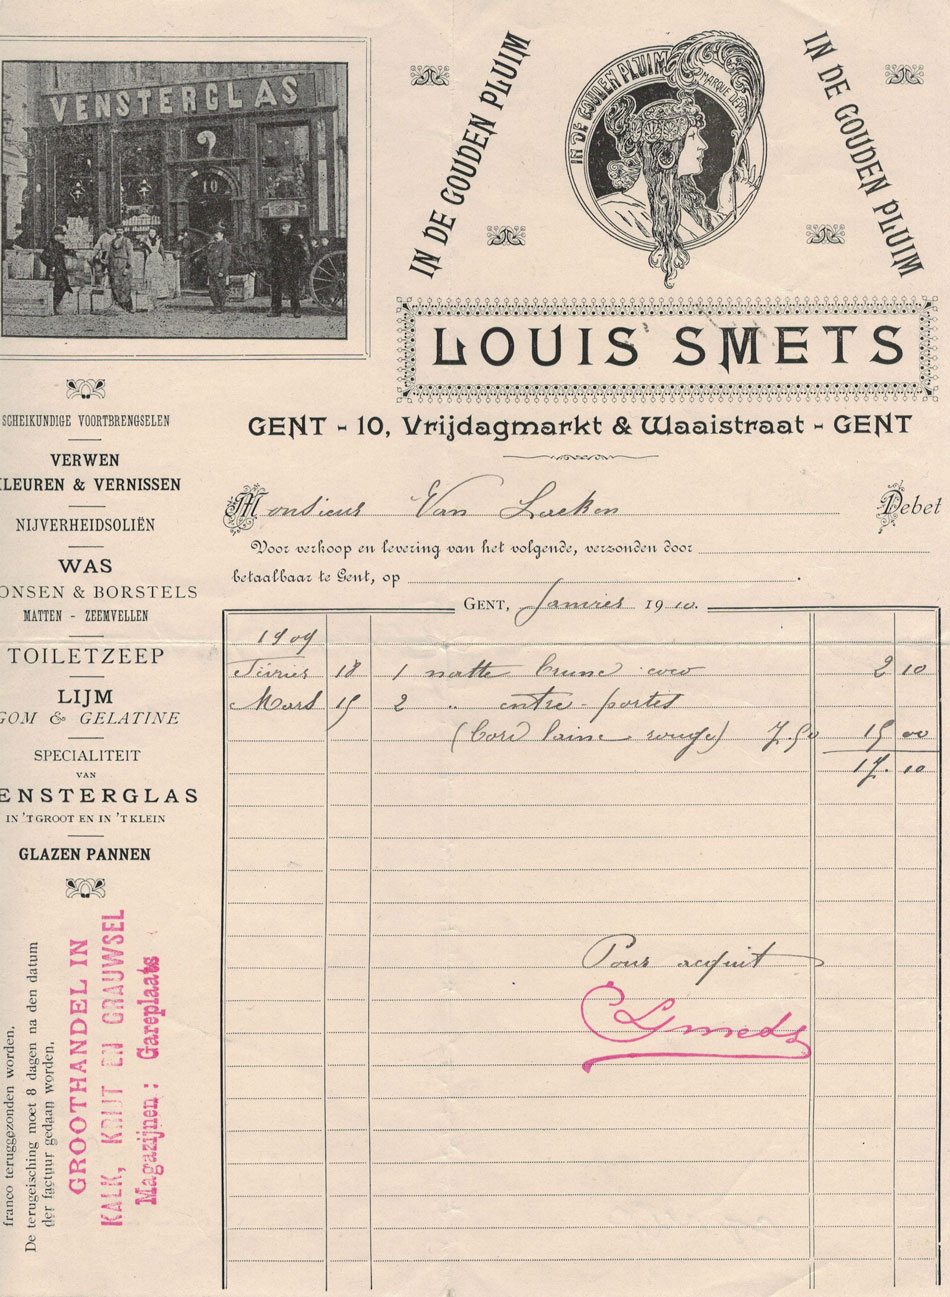 VENSTERGLAS
10
IN DE GOUDEN PLUIM
IN DE GOUDEN PLUIM
MARQUE DEP
IN DE GOUDEN PLUIM
LOUIS SMETS
GENT - 10, Vrijdagmarkt & Waaistraat - GENT
SCHEIKUNDIGE VOORTBRENGSELEN
VERWEN
LEUREN & VERNISSEN
NIJVERHEIDSOLIËN
WAS
ONSEN & BORSTELS
MATTEN - ZEEMVELLEN
TOILETZEEP
LIJM
GOM & GELATINE
SPECIALITEIT
VAN
ENSTERGLAS
IN 'T GROOT EN IN 'T KLEIN
GLAZEN PANNEN
Monsieur Van Lacken Debet
Voor verkoop en levering van het volgende, verzonden door
betaalbaar te Gent, op
GENT, Janvier 1910.
1909
Février 18 1 natte brune coco 2 10
Mars 15 2 " entre-portes
(bord laine rouge) 7.50 15 00
17. 10
Pour acquit
franco teruggezonden worden.
De terugeisching moet 8 dagen na den datum
der factuur gedaan worden.
GROOTHANDEL IN
KALK, KRIJT EN GRAUWSEL
Magazijnen : Gareplaats